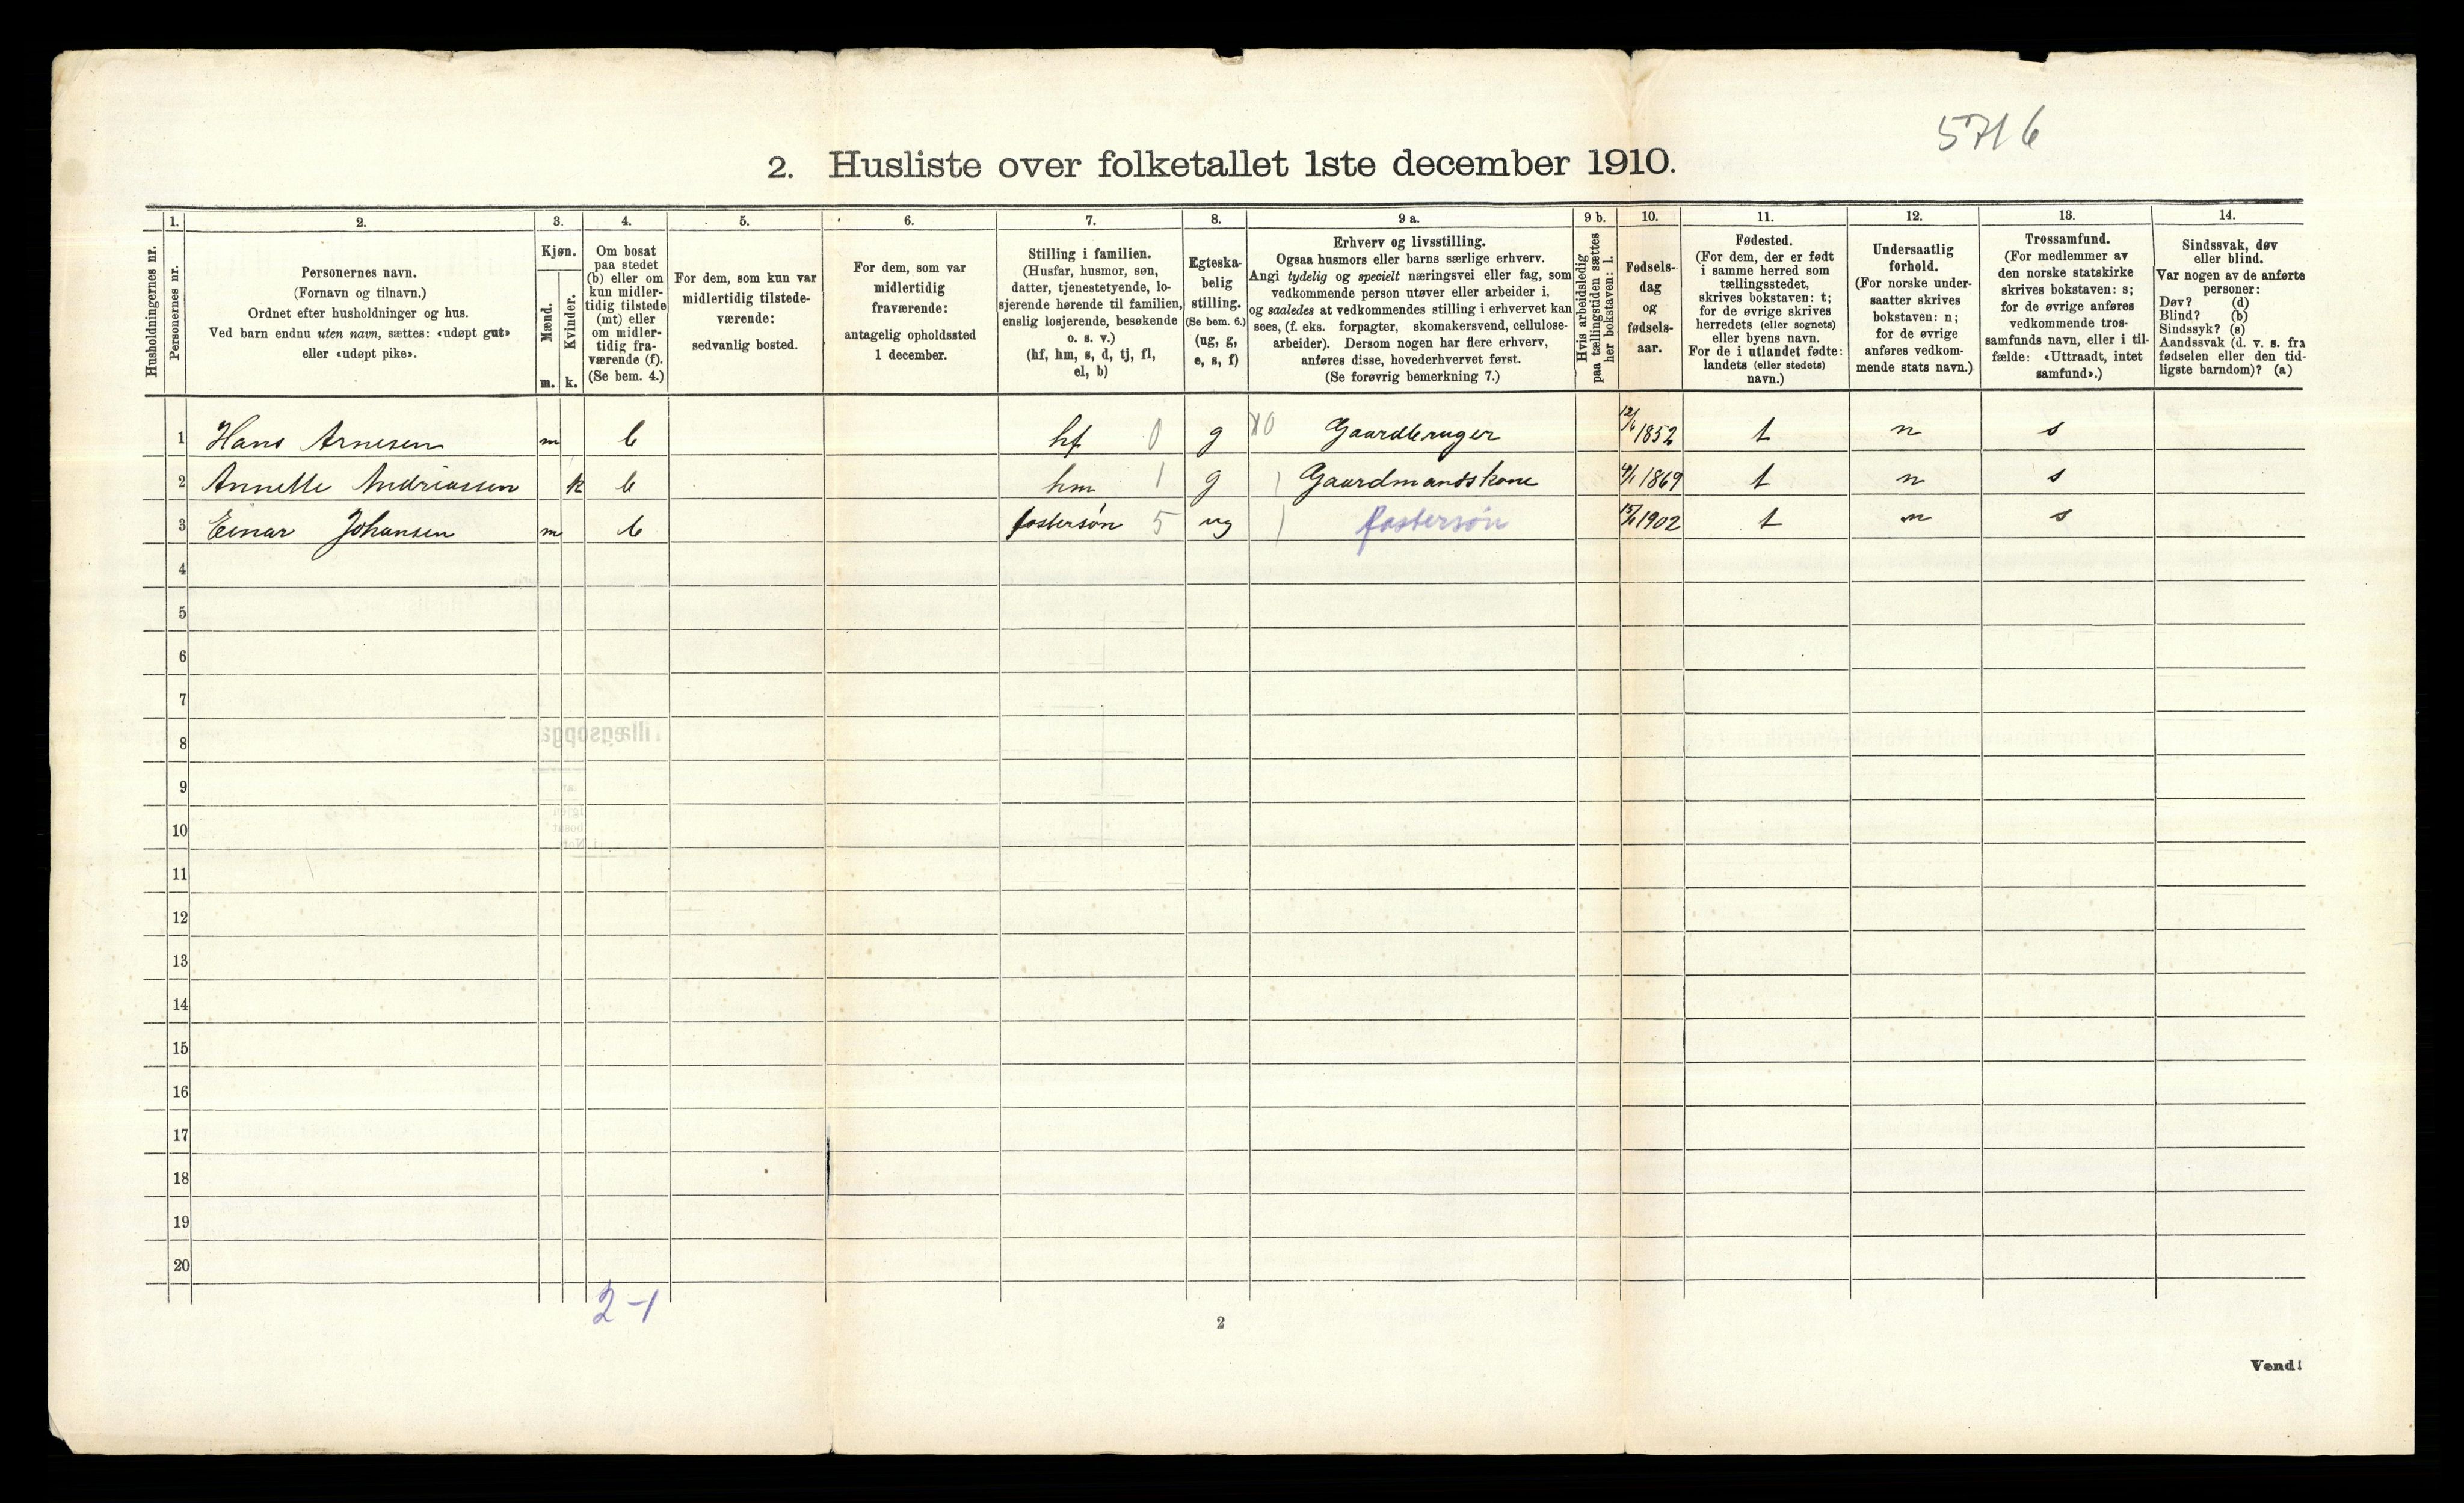 5716
2. Husliste over folketallet 1ste december 1910.
Husholdningernes nr.
1.
Personernes nr.
2.
Personernes navn.
(Fornavn og tilnavn.)
Ordnet efter husholdninger og hus.
Ved barn endnu uten navn, sættes: «udøpt gut»
eller «udøpt pike».
3.
Kjøn.
Mænd.
Kvinder.
m. k.
4.
Om bosat
paa stedet
(b) eller om
kun midler-
tidig tilstede
(mt) eller
om midler-
tidig fra-
værende (f).
(Se bem. 4.)
5.
For dem, som kun var
midlertidig tilstede-
værende:
sedvanlig bosted.
6.
For dem, som var
midlertidig
fraværende:
antagelig opholdssted
1 december.
7.
Stilling i familien.
(Husfar, husmor, søn,
datter, tjenestetyende, lo-
sjerende hørende til familien,
enslig losjerende, besøkende
o. s. v.)
(hf, hm, s, d, tj, fl,
el, b)
8.
Egteska-
belig
stilling.
(Se bem. 6.)
(ug, g,
e, s, f)
9 a.
Erhverv og livsstilling.
Ogsaa husmors eller barns særlige erhverv.
Angi tydelig og specielt næringsvei eller fag, som
vedkommende person utøver eller arbeider i,
og saaledes at vedkommendes stilling i erhvervet kan
sees, (f. eks. forpagter, skomakersvend, cellulose-
arbeider). Dersom nogen har flere erhverv,
anføres disse, hovederhvervet først.
(Se forøvrig bemerkning 7.)
9 b.
Hvis arbeidsledig
paa tællingstiden sættes
her bokstaven: l.
10.
Fødsels-
dag
og
fødsels-
aar.
11.
Fødested.
(For dem, der er født
i samme herred som
tællingsstedet,
skrives bokstaven: t;
for de øvrige skrives
herredets (eller sognets)
eller byens navn.
For de i utlandet fødte:
landets (eller stedets)
navn.)
12.
Undersaatlig
forhold.
(For norske under-
saatter skrives
bokstaven: n;
for de øvrige
anføres vedkom-
mende stats navn.)
13.
Trossamfund.
(For medlemmer av
den norske statskirke
skrives bokstaven: s;
for de øvrige anføres
vedkommende tros-
samfunds navn, eller i til-
fælde: «Uttraadt, intet
samfund».)
14.
Sindssvak, døv
eller blind.
Var nogen av de anførte
personer:
Døv? (d)
Blind? (b)
Sindssyk? (s)
Aandssvak (d. v. s. fra
fødselen eller den tid-
ligste barndom)? (a)
1 Hans Arnesen m b hf 0 g Gaardbruger 12/6 1852 t n s
2 Annette Andriassen k b hm 1 g Gaardmandskone 4/1 1869 t n s
3 Einar Johansen m b fostersøn 5 ug fostersøn 1902 t n s
4
5
6
7
8
9
10
11
12
13
14
15
16
17
18
19
20
2-1
2
Vend!